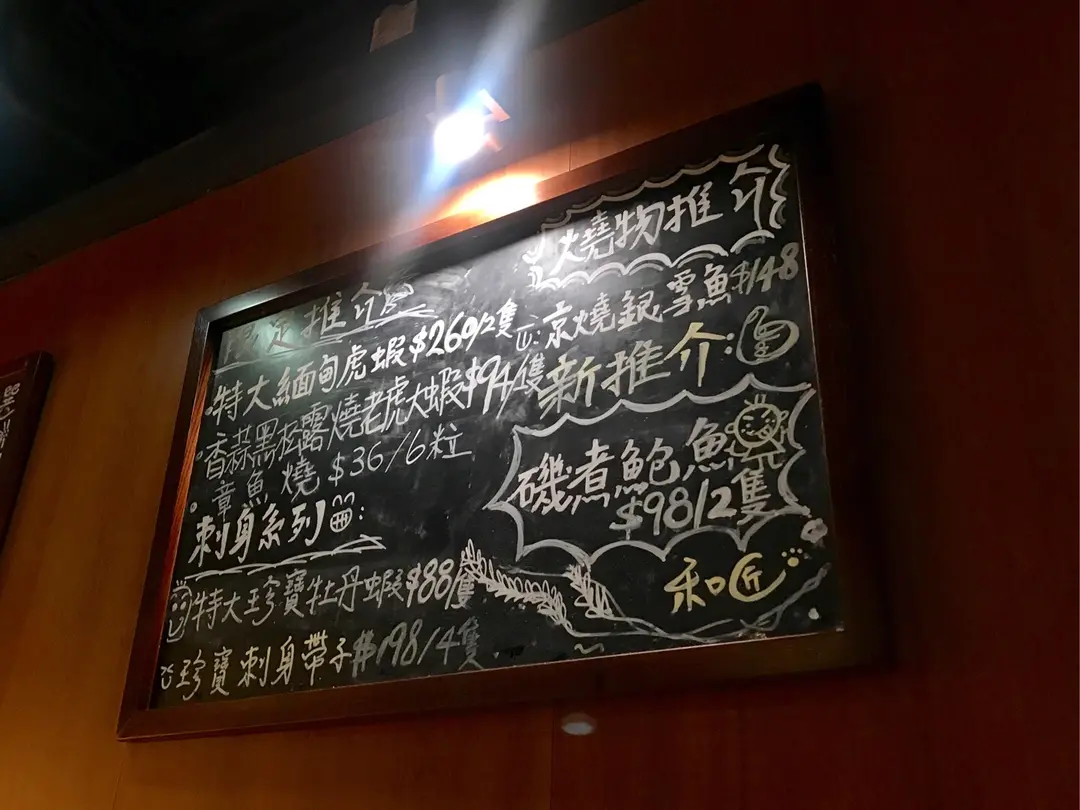 限定推介
特大緬甸虎蝦$269/2隻
香蒜黑松露燒老虎大蝦$94/隻
章魚燒$36/6粒
刺身系列:
特大珍寶牡丹蝦$88/隻
珍寶刺身帶子$198/4隻
燒物推介
京燒銀雪魚$148
新推介:
磯煮鮑魚
$98/2隻
和匠